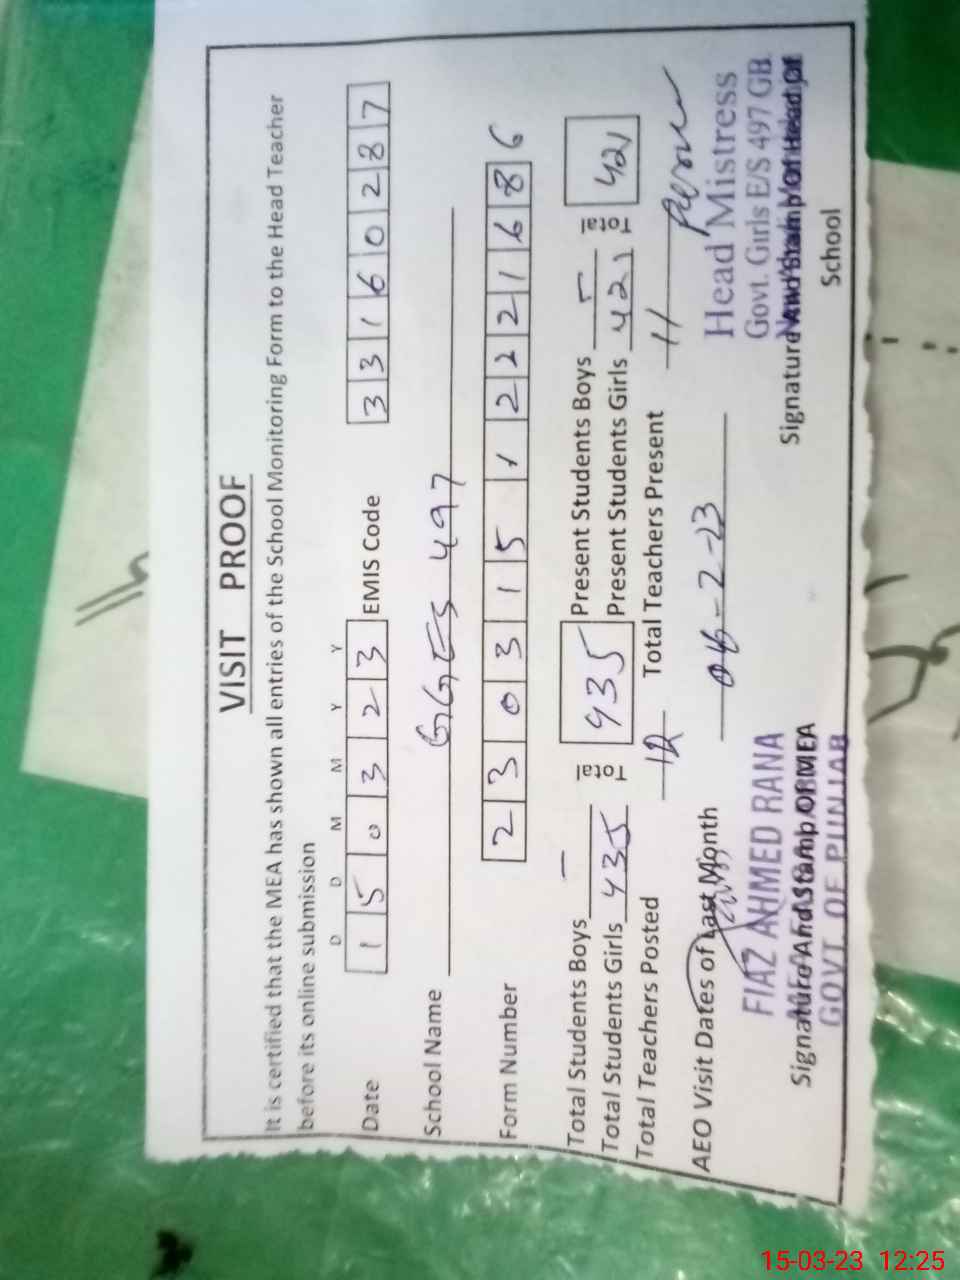 VISIT PROOF
It is certified that the MEA has shown all entries of the School Monitoring Form to the Head Teacher
before its online submission
D D M M Y Y
Date 1 5 0 3 2 3 EMIS Code 3 3 1 6 0 2 8 7
School Name GGES 497
Form Number 2 3 0 3 1 5 1 2 2 2 1 6 8 6
Total Students Boys — Total 435 Present Students Boys — Total 421
Total Students Girls 435 Present Students Girls 421
Total Teachers Posted 12 Total Teachers Present 11
AEO Visit Dates of Last Month 06-2-23
FIAZ AHMED RANA
Signature And Stamp Of MEA
GOVT. OF PUNJAB
Head Mistress
Govt. Girls E/S 497 GB
Signature And Stamp Of Head Of
School
15-03-23 12:25